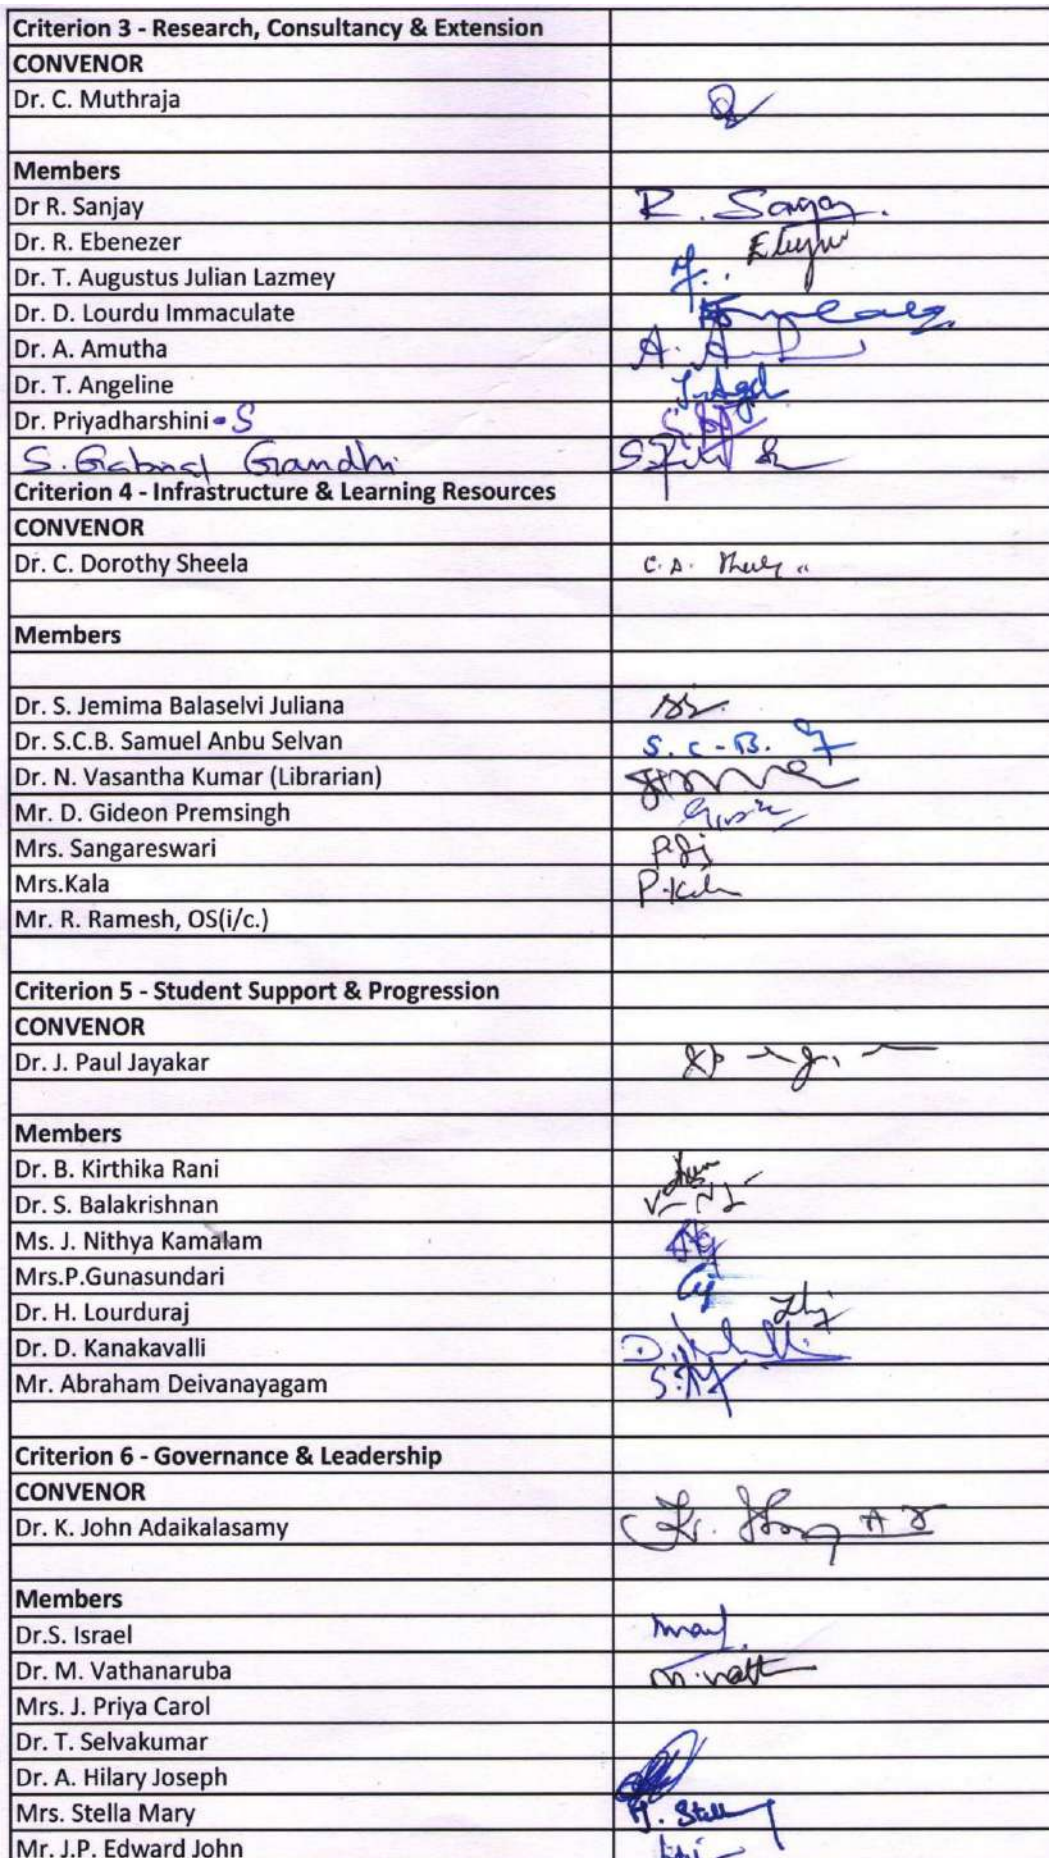 Criterion 3 - Research, Consultancy & Extension
CONVENOR
Dr. C. Muthraja
Members
Dr R. Sanjay R. Sanjay.
Dr. R. Ebenezer
Dr. T. Augustus Julian Lazmey
Dr. D. Lourdu Immaculate
Dr. A. Amutha
Dr. T. Angeline
Dr. Priyadharshini - S
S. Gabriel Gandhi
Criterion 4 - Infrastructure & Learning Resources
CONVENOR
Dr. C. Dorothy Sheela
Members
Dr. S. Jemima Balaselvi Juliana
Dr. S.C.B. Samuel Anbu Selvan S. C - B.
Dr. N. Vasantha Kumar (Librarian)
Mr. D. Gideon Premsingh
Mrs. Sangareswari
Mrs.Kala
Mr. R. Ramesh, OS(i/c.)
Criterion 5 - Student Support & Progression
CONVENOR
Dr. J. Paul Jayakar
Members
Dr. B. Kirthika Rani
Dr. S. Balakrishnan
Ms. J. Nithya Kamalam
Mrs.P.Gunasundari
Dr. H. Lourduraj
Dr. D. Kanakavalli
Mr. Abraham Deivanayagam
Criterion 6 - Governance & Leadership
CONVENOR
Dr. K. John Adaikalasamy
Members
Dr.S. Israel
Dr. M. Vathanaruba
Mrs. J. Priya Carol
Dr. T. Selvakumar
Dr. A. Hilary Joseph
Mrs. Stella Mary
Mr. J.P. Edward John